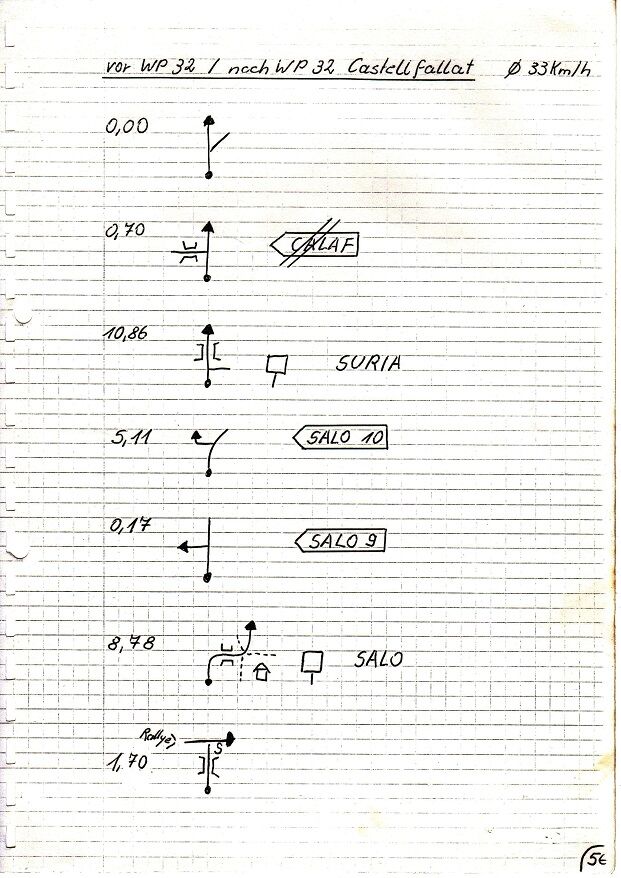 vor WP 32 / nach WP 32 Castellfallat Ø 33 Km/h
0,00
0,70 CALAF
10,86 SURIA
5,11 SALO 10
0,17 SALO 9
8,78 SALO
Rallye
S
1,70
5e